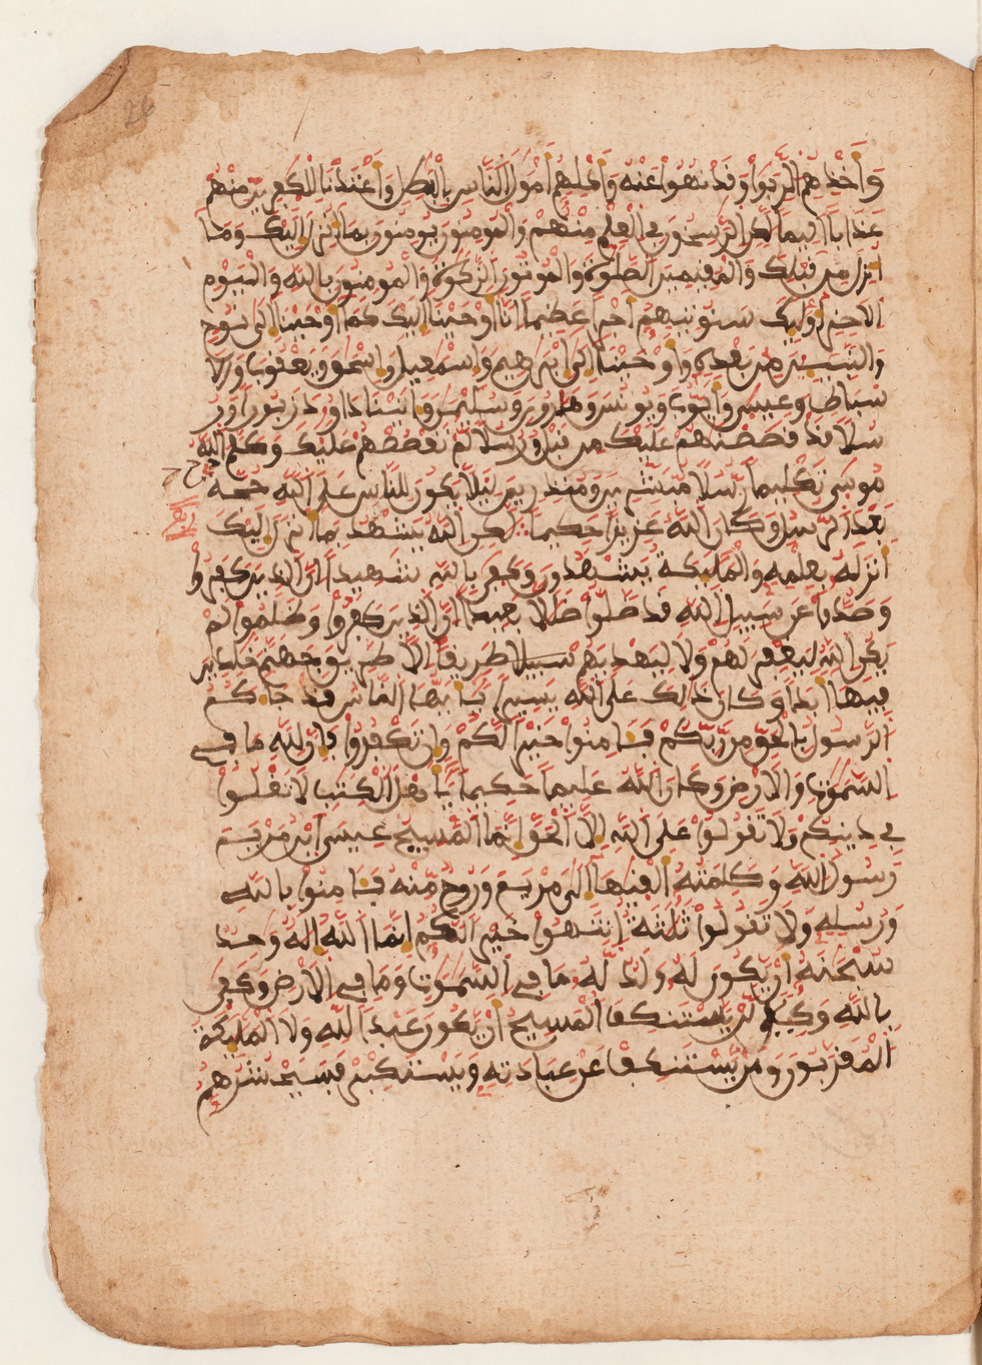 26
وَأَخْذِهِمُ الرِّبَوٰا۟ وَقَدْ نُهُوا۟ عَنْهُ وَأَكْلِهِمُ أَمْوَٰلَ النَّاسِ بِالْبَٰطِلِ وَأَعْتَدْنَا لِلْكَٰفِرِينَ مِنْهُمْ
عَذَابًا اَلِيمًا لَّٰكِنِ الرَّٰسِخُونَ فِي الْعِلْمِ مِنْهُمْ وَالْمُومِنُونَ يُومِنُونَ بِمَا أُنزِلَ إِلَيْكَ وَمَا
أُنزِلَ مِن قَبْلِكَ وَالْمُقِيمِينَ الصَّلَوٰةَ وَالْمُوتُونَ الزَّكَوٰةَ وَالْمُومِنُونَ بِاللَّهِ وَالْيَوْمِ
الَاخِرِ أُوْلَٰٓئِكَ سَنُوتِيهِمُ أَجْرًا عَظِيمًا اِنَّا أَوْحَيْنَا إِلَيْكَ كَمَا أَوْحَيْنَا إِلَىٰ نُوحٍ
وَالنَّبِيِّينَ مِن بَعْدِهِ وَأَوْحَيْنَا إِلَىٰ إِبْرَٰهِيمَ وَإِسْمَٰعِيلَ وَإِسْحَٰقَ وَيَعْقُوبَ وَالَا
سْبَاطِ وَعِيسَىٰ وَأَيُّوبَ وَيُونُسَ وَهَٰرُونَ وَسُلَيْمَٰنَ وَءَاتَيْنَا دَاوُۥدَ زَبُورًا وَرُ
سُلًا قَدْ قَصَصْنَٰهُمْ عَلَيْكَ مِن قَبْلُ وَرُسُلًا لَّمْ نَقْصُصْهُمْ عَلَيْكَ وَكَلَّمَ اللَّهُ
مُوسَىٰ تَكْلِيمًا رُّسُلًا مُّبَشِّرِينَ وَمُنذِرِينَ لِيَلَّا يَكُونَ لِلنَّاسِ عَلَى اللَّهِ حُجَّةٌ
بَعْدَ الرُّسُلِ وَكَانَ اللَّهُ عَزِيزًا حَكِيمًا لَّٰكِنِ اللَّهُ يَشْهَدُ بِمَا أَنزَلَ إِلَيْكَ
أَنزَلَهُ بِعِلْمِهِ وَالْمَلَٰٓئِكَةُ يَشْهَدُونَ وَكَفَىٰ بِاللَّهِ شَهِيدًا اِنَّ الَّذِينَ كَفَرُوا۟
وَصَدُّوا۟ عَن سَبِيلِ اللَّهِ قَد ضَّلُّوا۟ ضَلَٰلًا بَعِيدًا اِنَّ الَّذِينَ كَفَرُوا۟ وَظَلَمُوا۟ لَمْ
يَكُنِ اللَّهُ لِيَغْفِرَ لَهُمْ وَلَا لِيَهْدِيَهُمْ طَرِيقًا اِلَّا طَرِيقَ جَهَنَّمَ خَٰلِدِينَ
فِيهَا أَبَدًا وَكَانَ ذَٰلِكَ عَلَى اللَّهِ يَسِيرًا يَٰٓأَيُّهَا النَّاسُ قَدْ جَآءَكُمُ
الرَّسُولُ بِالْحَقِّ مِن رَّبِّكُمْ فَـَٔامِنُوا۟ خَيْرًا لَّكُمْ وَإِن تَكْفُرُوا۟ فَإِنَّ لِلَّهِ مَا فِي
السَّمَٰوَٰتِ وَالَارْضِ وَكَانَ اللَّهُ عَلِيمًا حَكِيمًا يَٰٓأَهْلَ الْكِتَٰبِ لَا تَغْلُوا۟
فِي دِينِكُمْ وَلَا تَقُولُوا۟ عَلَى اللَّهِ إِلَّا الْحَقَّ إِنَّمَا الْمَسِيحُ عِيسَى ابْنُ مَرْيَمَ
رَسُولُ اللَّهِ وَكَلِمَتُهُ أَلْقَيٰهَا إِلَىٰ مَرْيَمَ وَرُوحٌ مِّنْهُ فَـَٔامِنُوا۟ بِاللَّهِ
وَرُسُلِهِ وَلَا تَقُولُوا۟ ثَلَٰثَةٌ اِنتَهُوا۟ خَيْرًا لَّكُمُ إِنَّمَا اللَّهُ إِلَٰهٌ وَٰحِدٌ
سُبْحَٰنَهُ أَن يَكُونَ لَهُ وَلَدٌ لَّهُ مَا فِي السَّمَٰوَٰتِ وَمَا فِي الَارْضِ وَكَفَىٰ
بِاللَّهِ وَكِيلًا لَّن يَسْتَنكِفَ الْمَسِيحُ أَن يَكُونَ عَبْدًا لِّلَّهِ وَلَا الْمَلَٰٓئِكَةُ
الْمُقَرَّبُونَ وَمَن يَسْتَنكِفْ عَنْ عِبَادَتِهِ وَيَسْتَكْبِرْ فَسَيَحْشُرُهُمُ